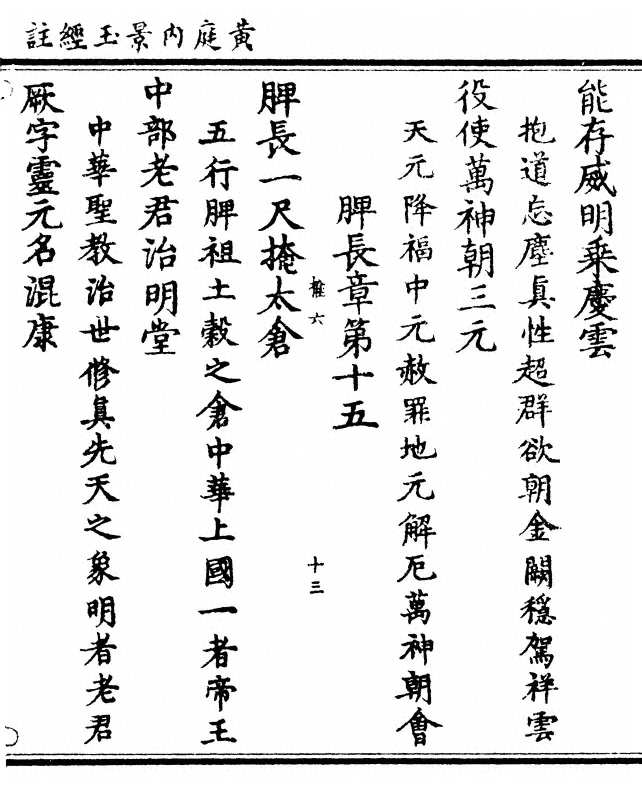 黃庭內景玉經註
能存威明乘慶雲
抱道忘塵眞性超群欲朝金闕穩駕祥雲
役使萬神朝三元
天元降福中元赦罪地元解厄萬神朝會
脾長章第十五
推六
十三
脾長一尺掩太倉
五行脾祖土穀之倉中華上國一者帝王
中部老君治明堂
中華聖教治世修眞先天之象明者老君
厥字靈元名混康